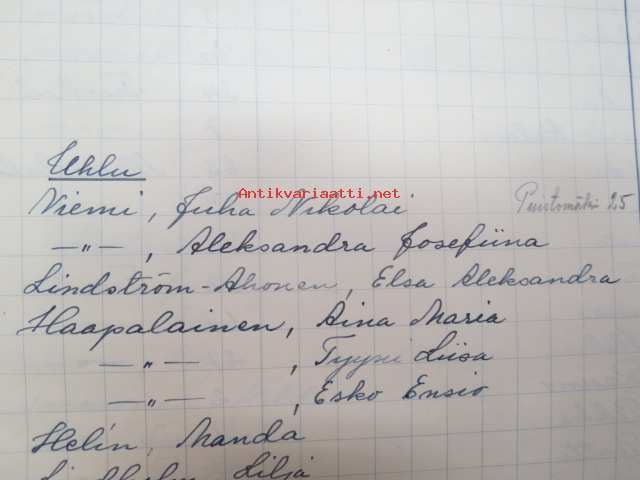 Uhlu
Antikvariaatti.net
Niemi, Juha Nikolai Puistomäki 25
—"— , Aleksandra Josefiina
Lindström-Ahonen, Elsa Aleksandra
Haapalainen, Aina Maria
—"— , Tyyni Liisa
—"— , Esko Ensio
Helin, Manda
Lindholm Lilja